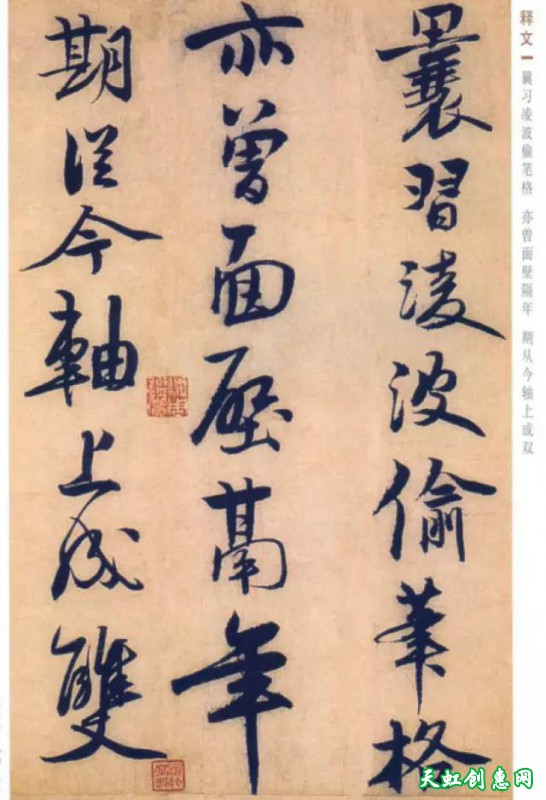 释文一 曩习凌波偷笔格 亦曾面壁隔年 期从今轴上成双
曩習淩波偷筆格
亦曾面壁鬲年
期從今軸上成雙
天虹创惠网